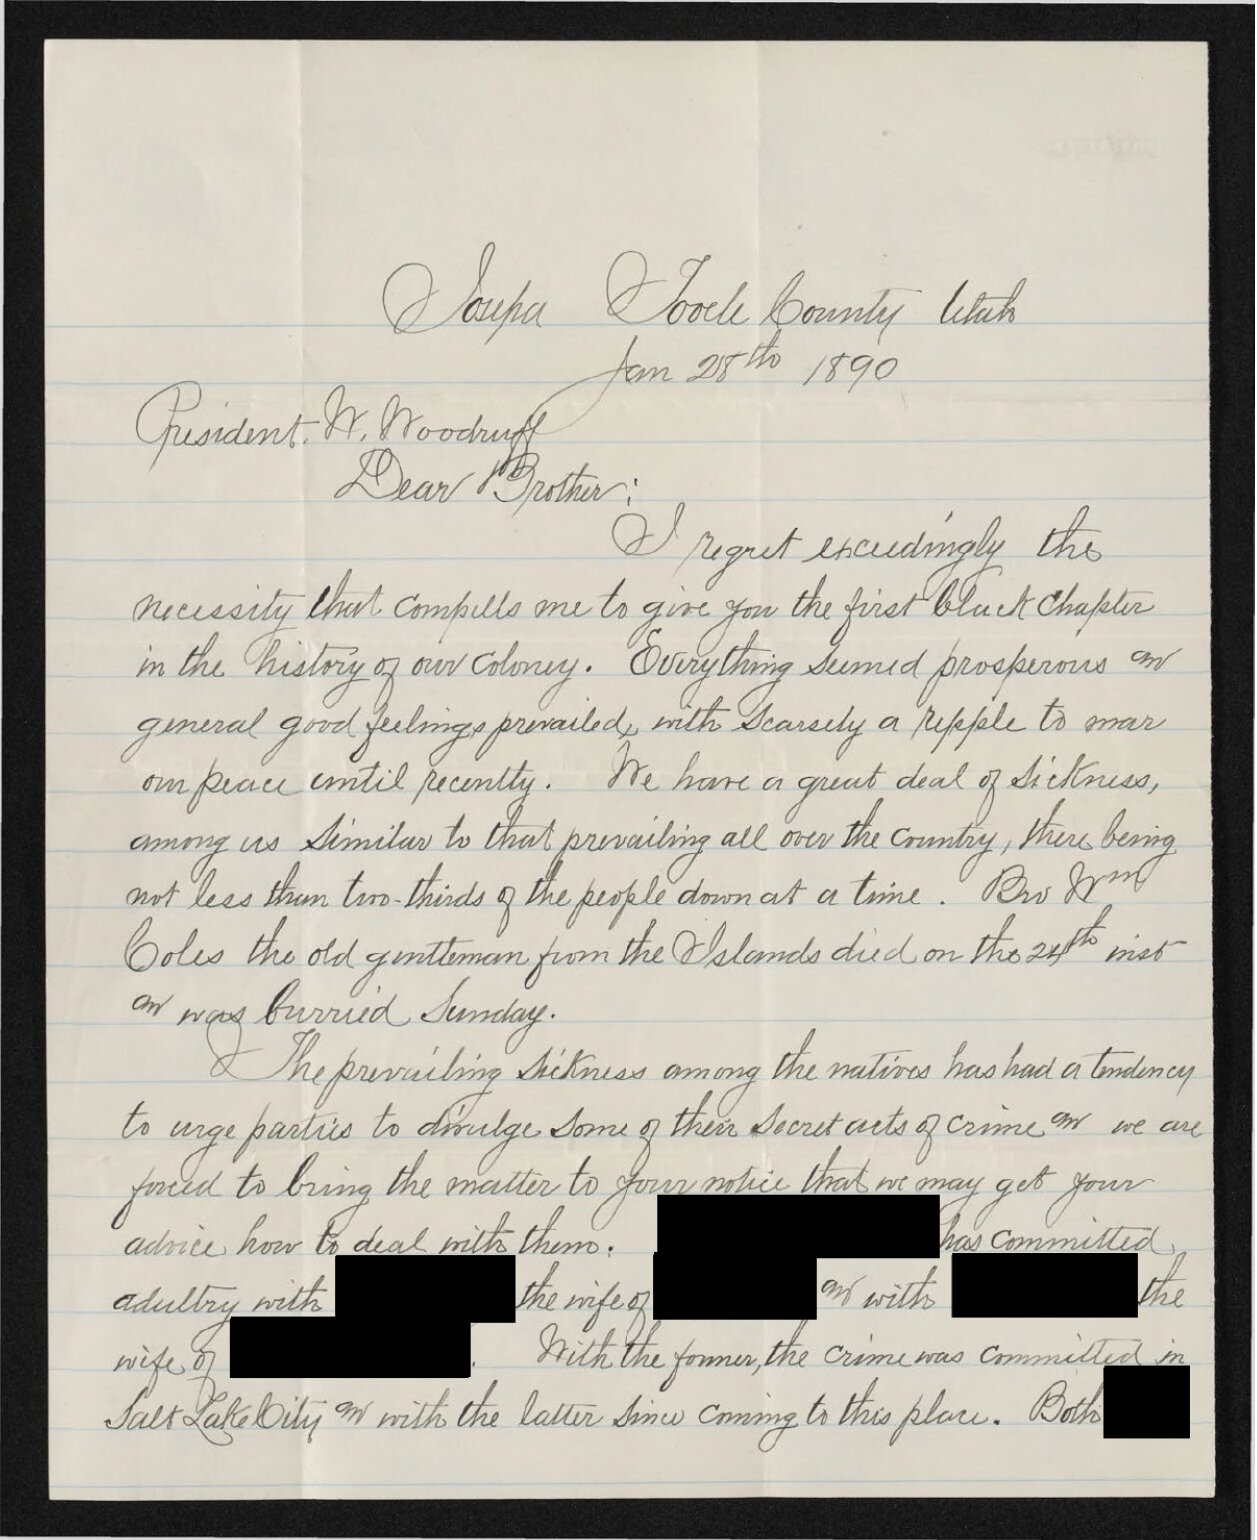 Iosepa Tooele County Utah
Jan 28th 1890
President. W. Woodruff
Dear Brother:
I regret exceedingly the
necessity that compells me to give you the first black chapter
in the history of our coloney. Everything seemed prosperous and
general good feelings prevailed, with scarsely a repple to mar
our peace until recently. We have a great deal of sickness,
among us similar to that prevailing all over the country, there being
not less than two-thirds of the people down at a time. Bro Wm
Coles the old gentleman from the Islands died on the 24th inst
and was burried Sunday.
The prevailing sickness among the natives has had a tendency
to urge parties to divulge some of their secret acts of crime and we are
forced to bring the matter to your notice that we may get your
advice how to deal with them. has committed
adultry with the wife of and with the
wife of . With the former, the crime was committed in
Salt Lake City and with the latter since coming to this place. Both